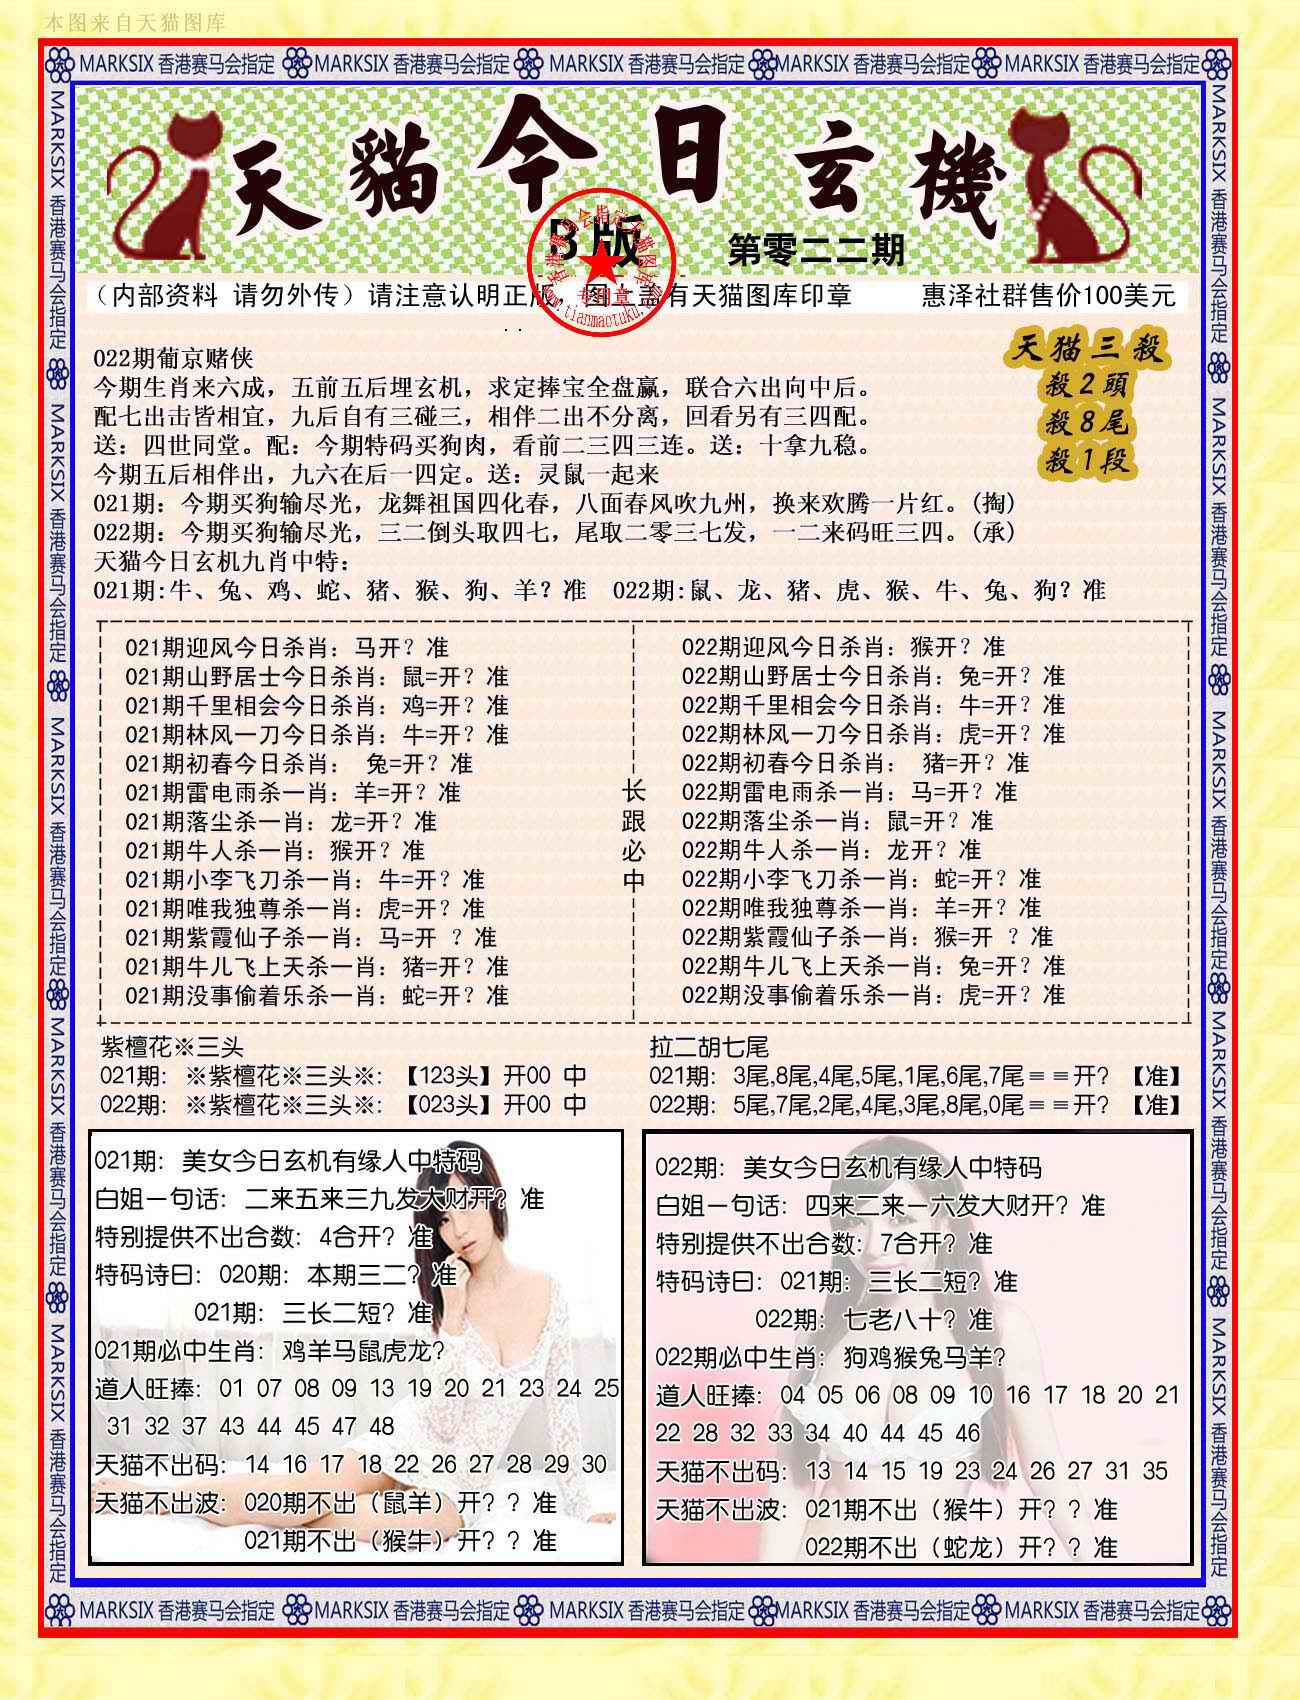 本图来自天猫图库
MARKSIX 香港赛马会指定 MARKSIX 香港赛马会指定 MARKSIX 香港赛马会指定 MARKSIX 香港赛马会指定 MARKSIX 香港赛马会指定
天貓今日玄機
B版
第零二二期
香港赛马会指定天猫图库
专用章
www.tianmaotuku.com
（内部资料 请勿外传）请注意认明正版，图上盖有天猫图库印章 惠泽社群售价100美元
天猫三殺
殺2頭
殺8尾
殺1段
022期葡京赌侠
今期生肖来六成，五前五后埋玄机，求定捧宝全盘赢，联合六出向中后。
配七出击皆相宜，九后自有三碰三，相伴二出不分离，回看另有三四配。
送：四世同堂。配：今期特码买狗肉，看前二三四三连。送：十拿九稳。
今期五后相伴出，九六在后一四定。送：灵鼠一起来
021期：今期买狗输尽光，龙舞祖国四化春，八面春风吹九州，换来欢腾一片红。(掏)
022期：今期买狗输尽光，三二倒头取四七，尾取二零三七发，一二来码旺三四。(承)
天猫今日玄机九肖中特：
021期:牛、兔、鸡、蛇、猪、猴、狗、羊？准 022期:鼠、龙、猪、虎、猴、牛、兔、狗？准
021期迎风今日杀肖：马开？准
021期山野居士今日杀肖：鼠=开？准
021期千里相会今日杀肖：鸡=开？准
021期林风一刀今日杀肖：牛=开？准
021期初春今日杀肖： 兔=开？准
021期雷电雨杀一肖：羊=开？准
021期落尘杀一肖：龙=开？准
021期牛人杀一肖：猴开？准
021期小李飞刀杀一肖：牛=开？准
021期唯我独尊杀一肖：虎=开？准
021期紫霞仙子杀一肖：马=开 ？准
021期牛儿飞上天杀一肖：猪=开？准
021期没事偷着乐杀一肖：蛇=开？准
长跟必中
022期迎风今日杀肖：猴开？准
022期山野居士今日杀肖：兔=开？准
022期千里相会今日杀肖：牛=开？准
022期林风一刀今日杀肖：虎=开？准
022期初春今日杀肖： 猪=开？准
022期雷电雨杀一肖：马=开？准
022期落尘杀一肖：鼠=开？准
022期牛人杀一肖：龙开？准
022期小李飞刀杀一肖：蛇=开？准
022期唯我独尊杀一肖：羊=开？准
022期紫霞仙子杀一肖：猴=开 ？准
022期牛儿飞上天杀一肖：兔=开？准
022期没事偷着乐杀一肖：虎=开？准
紫檀花※三头
021期：※紫檀花※三头※:【123头】开00 中
022期：※紫檀花※三头※:【023头】开00 中
拉二胡七尾
021期：3尾,8尾,4尾,5尾,1尾,6尾,7尾＝＝开？【准】
022期：5尾,7尾,2尾,4尾,3尾,8尾,0尾＝＝开？【准】
021期：美女今日玄机有缘人中特码
白姐一句话：二来五来三九发大财开？准
特别提供不出合数：4合开？准
特码诗曰：020期：本期三二？准
021期：三长二短？准
021期必中生肖：鸡羊马鼠虎龙？
道人旺捧：01 07 08 09 13 19 20 21 23 24 25
31 32 37 43 44 45 47 48
天猫不出码：14 16 17 18 22 26 27 28 29 30
天猫不出波：020期不出（鼠羊）开？？准
021期不出（猴牛）开？？准
022期：美女今日玄机有缘人中特码
白姐一句话：四来二来一六发大财开？准
特别提供不出合数：7合开？准
特码诗曰：021期：三长二短？准
022期：七老八十？准
022期必中生肖：狗鸡猴兔马羊？
道人旺捧：04 05 06 08 09 10 16 17 18 20 21
22 28 32 33 34 40 44 45 46
天猫不出码：13 14 15 19 23 24 26 27 31 35
天猫不出波：021期不出（猴牛）开？？准
022期不出（蛇龙）开？？准
MARKSIX 香港赛马会指定 MARKSIX 香港赛马会指定 MARKSIX 香港赛马会指定 MARKSIX 香港赛马会指定 MARKSIX 香港赛马会指定
MARKSIX 香港赛马会指定 MARKSIX 香港赛马会指定 MARKSIX 香港赛马会指定 MARKSIX 香港赛马会指定 MARKSIX 香港赛马会指定
MARKSIX 香港赛马会指定 MARKSIX 香港赛马会指定 MARKSIX 香港赛马会指定 MARKSIX 香港赛马会指定 MARKSIX 香港赛马会指定